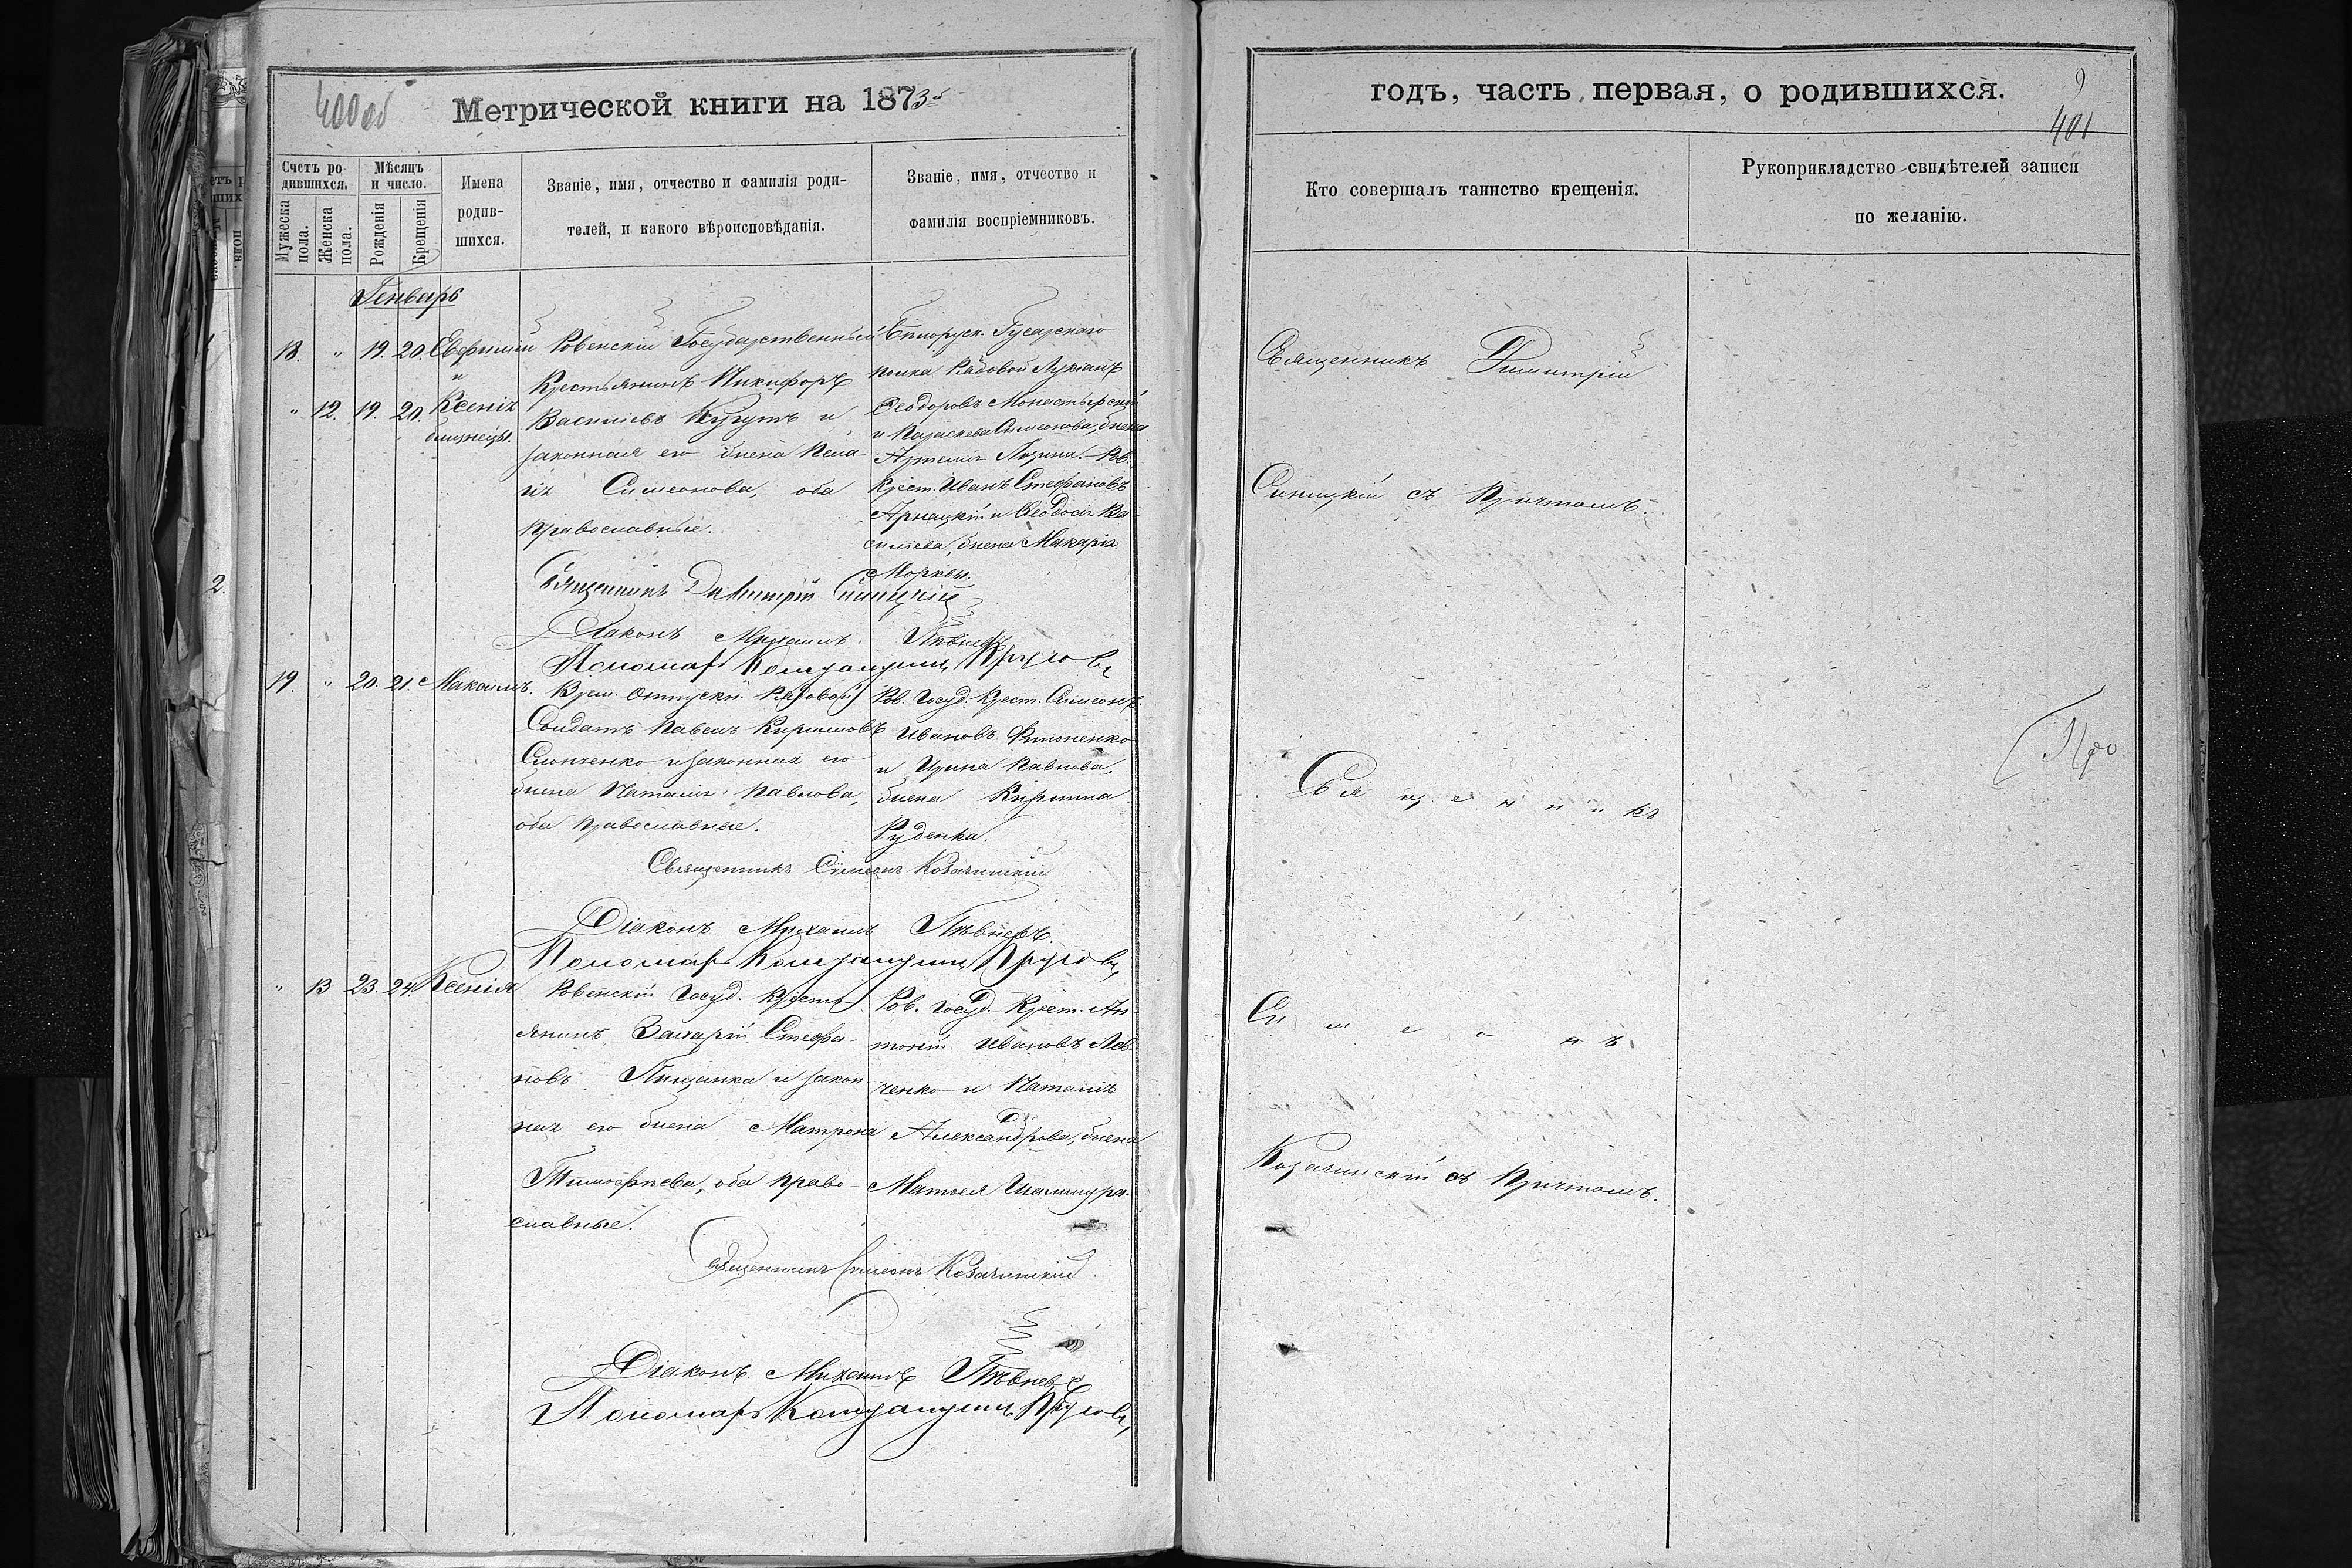 400 об
Метрической книги на 1873й
Счетъ ро
дившихся.
Мѣсяцъ
и число.
Мужеска пола.
Женска пола.
Рожденія
Крещенія
Имена
родив-
шихся.
Званіе, имя, отчество и фамилія роди-
телей, и какого вѣроисповѣданія.
Званіе, имя, отчество и
фамилія воспріемниковъ.
Генварь
18. " 19. 20. Евфимій
и
" 12. 19. 20. Ксенія
близнецы.
Ровенскій Государственный
Крестьянинъ Никифоръ
Васильевъ и
законная его жена Пела-
гія Симеонова, оба
православные.
Бѣлоруск. Гусарскаго
полка Рядовой Лукіанъ
Ѳеодоровъ Монастырскій
и Параскева Симеонова, жена
Артемія Лозина. Ров.
Крест. Иванъ Стефановъ
и Ѳеодосія Ва-
сильева, жена Макарія
Морквы.
Священникъ Димитрій Синицкій
Діаконъ Михаилъ Пѣвневъ
Пономарь
19. " 20. 21. Максимъ.
Врем. отпускн. Рядовой
Солдатъ Павелъ Кириловъ
и законная его
жена Наталія Павлова,
оба православные.
Ров. Госуд. Крест. Симеонъ
Ивановъ
и Ирина Павлова,
жена Кирила
Руденка.
Священникъ Симеонъ Козачинскій
Діаконъ Михаилъ Пѣвневъ.
Пономарь
" 13 23. 24. Ксенія
Ровенскій Госуд. Кресть-
янинъ Захарій Стефа-
новъ Пищанка и закон-
ная его жена Матрона
Тимофѣева, оба право-
славные.
Ров. Госуд. Крест. Ан-
тоній Ивановъ Лев-
ченко и Наталія
Александрова, жена
Матѳея
Священникъ Симеонъ Козачинскій
Діаконъ Михаилъ Пѣвневъ
Пономарь
годъ, часть первая, о родившихся.
9
401
Кто совершалъ таинство крещенія.
Рукоприкладство свидѣтелей записи
по желанію.
Священникъ Димитрій
Синицкій съ причтомъ.
Священникъ
Симеонъ
Козачинскій съ причтомъ.